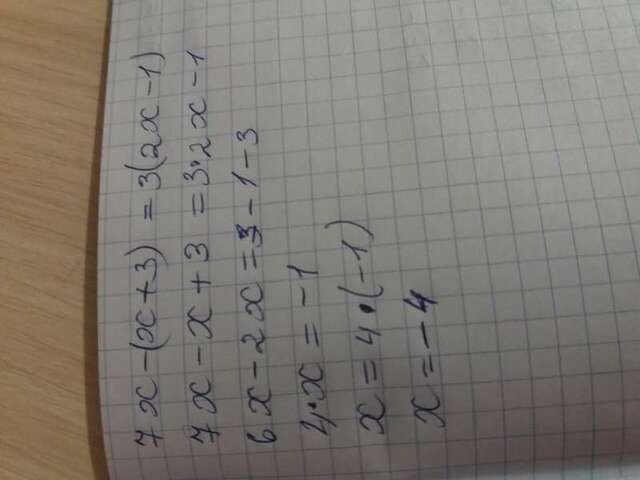 7x-(x+3)=3(2x-1)
7x-x+3=3·2x-1
6x-2x=3-1-3
4·x=-1
x=4·(-1)
x=-4